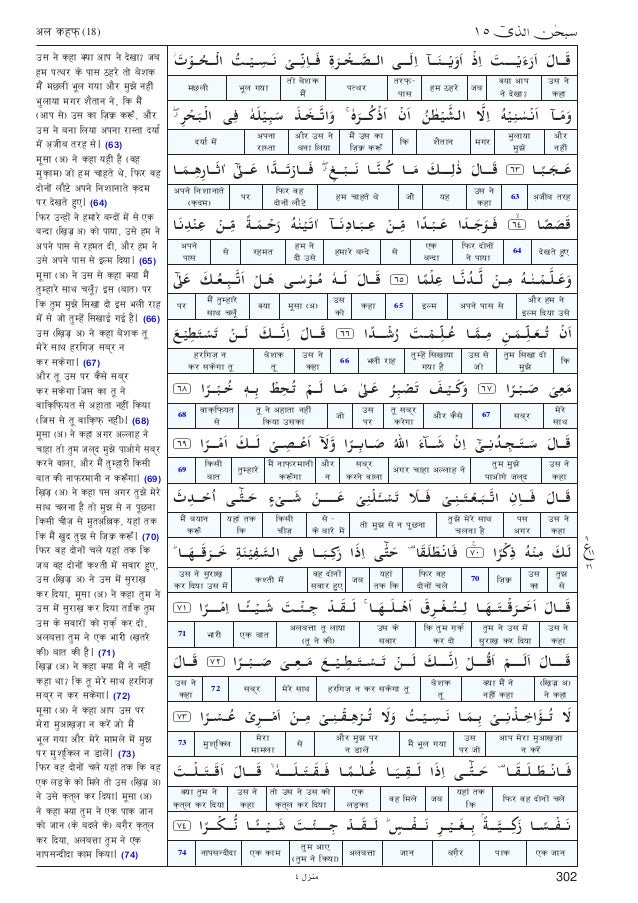 अल कहफ़ (18)
سبحٰن الذی ١٥
उस ने कहा क्या आप ने देखा? जब
हम पत्थर के पास ठहरे तो बेशक
मैं मछली भूल गया और मुझे नहीं
भुलाया मगर शैतान ने, कि मैं
(आप से) उस का ज़िक्र करूँ, और
उस ने बना लिया अपना रास्ता दर्या
में अ़जीब तरह से। (63)
मूसा (अ) ने कहा यही है (वह
मुक़ाम) जो हम चाहते थे, फिर वह
दोनों लौटे अपने निशानाते क़दम
पर देखते हुए। (64)
फिर उन्हों ने हमारे बन्दों में से एक
बन्दा (ख़िज़्र अ) को पाया, उसे हम ने
अपने पास से रहमत दी, और हम ने
उसे अपने पास से इ़ल्म दिया। (65)
मूसा (अ) ने उस से कहा क्या मैं
तुम्हारे साथ चलूँ? इस (बात) पर
कि तुम मुझे सिखा दो इस भली राह
में से जो तुम्हें सिखाई गई है। (66)
उस (ख़िज़्र अ) ने कहा बेशक तू
मेरे साथ हरगिज़ सब्र न
कर सकेगा। (67)
और तू उस पर कैसे सब्र
कर सकेगा जिस का तू ने
वाक़िफ़ियत से अहाता नहीं किया
(जिस से तू वाक़िफ़ नहीं)। (68)
मूसा (अ) ने कहा अगर अल्लाह ने
चाहा तो तुम जल्द मुझे पाओगे सब्र
करने वाला, और मैं तुम्हारी किसी
बात की नाफ़रमानी न करूँगा। (69)
ख़िज़्र (अ) ने कहा पस अगर तुझे मेरे
साथ चलना है तो मुझ से न पूछना
किसी चीज़ से मुतअ़ल्लिक़, यहां तक
कि मैं ख़ुद तुझ से ज़िक्र करूँ। (70)
फिर वह दोनों चले यहां तक कि
जब वह दोनों कश्ती में सवार हुए,
उस (ख़िज़्र अ) ने उस में सुराख़
कर दिया, मूसा (अ) ने कहा तुम ने
उस में सुराख़ कर दिया ताकि तुम
उस के सवारों को ग़र्क़ कर दो,
अलबत्ता तुम ने एक भारी (ख़तरे
की) बात की है। (71)
ख़िज़्र (अ) ने कहा क्या मैं ने नहीं
कहा था? कि तू मेरे साथ हरगिज़
सब्र न कर सकेगा। (72)
मूसा (अ) ने कहा आप उस पर
मेरा मुआख़ज़ा न करें जो मैं
भूल गया और मेरे मामले में मुझ
पर मुश्किल न डालें। (73)
फिर वह दोनों चले यहां तक कि वह
एक लड़के को मिले तो उस (ख़िज़्र अ)
ने उसे क़त्ल कर दिया। मूसा (अ)
ने कहा क्या तुम ने एक पाक जान
को जान (के बदले के) बग़ैर क़त्ल
कर दिया, अलबत्ता तुम ने एक
नापसन्दीदा काम किया। (74)
قَالَ اَرَءَيْتَ اِذْ اَوَيْنَآ اِلَى الصَّخْرَةِ فَاِنِّىْ نَسِيْتُ الْحُوْتَ
मछली | भूल गया | तो बेशक मैं | पत्थर | तरफ़-पास | हम ठहरे | जब | क्या आप ने देखा? | उस ने कहा
وَمَآ اَنْسٰىنِيْهُ اِلَّا الشَّيْطٰنُ اَنْ اَذْكُرَهٗ ۚ وَاتَّخَذَ سَبِيْلَهٗ فِى الْبَحْرِ ۖ
दर्या में | अपना रास्ता | और उस ने बना लिया | मैं उस का ज़िक्र करूँ | कि | शैतान | मगर | भुलाया मुझे | और नहीं
عَجَبًا ﴿٦٣﴾ قَالَ ذٰلِكَ مَا كُنَّا نَبْغِ ۖ فَارْتَدَّا عَلٰٓى اٰثَارِهِمَا
अपने निशानाते (क़दम) | पर | फिर वह दोनों लौटे | हम चाहते थे | जो | यह | उस ने कहा | 63 | अ़जीब तरह
قَصَصًا ﴿٦٤﴾ فَوَجَدَا عَبْدًا مِّنْ عِبَادِنَآ اٰتَيْنٰهُ رَحْمَةً مِّنْ عِنْدِنَا
अपने पास | से | रहमत | हम ने दी उसे | हमारे बन्दे | से | एक बन्दा | फिर दोनों ने पाया | 64 | देखते हुए
وَعَلَّمْنٰهُ مِنْ لَّدُنَّا عِلْمًا ﴿٦٥﴾ قَالَ لَهٗ مُوْسٰى هَلْ اَتَّبِعُكَ عَلٰٓى
पर | मैं तुम्हारे साथ चलूँ | क्या | मूसा (अ) | उस को | कहा | 65 | इ़ल्म | अपने पास से | और हम ने इ़ल्म दिया उसे
اَنْ تُعَلِّمَنِ مِمَّا عُلِّمْتَ رُشْدًا ﴿٦٦﴾ قَالَ اِنَّكَ لَنْ تَسْتَطِيْعَ
हरगिज़ न कर सकेगा तू | बेशक तू | उस ने कहा | 66 | भली राह | तुम्हें सिखाया गया है | उस से जो | तुम सिखा दो मुझे | कि
مَعِىَ صَبْرًا ﴿٦٧﴾ وَكَيْفَ تَصْبِرُ عَلٰى مَا لَمْ تُحِطْ بِهٖ خُبْرًا ﴿٦٨﴾
68 | वाक़िफ़ियत से | तू ने अहाता नहीं किया उसका | जो | उस पर | तू सब्र करेगा | और कैसे | 67 | सब्र | मेरे साथ
قَالَ سَتَجِدُنِىْٓ اِنْ شَآءَ اللّٰهُ صَابِرًا وَّلَآ اَعْصِىْ لَكَ اَمْرًا ﴿٦٩﴾
69 | किसी बात | तुम्हारे | मैं नाफ़रमानी करूँगा | और न | सब्र करने वाला | अगर चाहा अल्लाह ने | तुम मुझे पाओगे जल्द | उस ने कहा
قَالَ فَاِنِ اتَّبَعْتَنِىْ فَلَا تَسْـَٔلْنِىْ عَنْ شَىْءٍ حَتّٰىٓ اُحْدِثَ
मैं बयान करूँ | यहां तक कि | किसी चीज़ | से - के बारे में | तो मुझ से न पूछना | तुझे मेरे साथ चलना है | पस अगर | उस ने कहा
لَكَ مِنْهُ ذِكْرًا ﴿٧٠﴾ فَانْطَلَقَا ۖ حَتّٰىٓ اِذَا رَكِبَا فِى السَّفِيْنَةِ خَرَقَهَا ۖ
उस ने सुराख़ कर दिया उस में | कश्ती में | वह दोनों सवार हुए | जब | यहां तक कि | फिर वह दोनों चले | 70 | ज़िक्र | उस का | तुझ से
قَالَ اَخَرَقْتَهَا لِتُغْرِقَ اَهْلَهَا ۚ لَقَدْ جِئْتَ شَيْـًٔا اِمْرًا ﴿٧١﴾
71 | भारी | एक बात | अलबत्ता तू लाया (तू ने की) | उस के सवार | कि तुम ग़र्क़ कर दो | तुम ने उस में सुराख़ कर दिया | उस ने कहा
قَالَ اَلَمْ اَقُلْ اِنَّكَ لَنْ تَسْتَطِيْعَ مَعِىَ صَبْرًا ﴿٧٢﴾ قَالَ
उस ने कहा | 72 | सब्र | मेरे साथ | हरगिज़ न कर सकेगा तू | बेशक तू | क्या मैं ने नहीं कहा | (ख़िज़्र अ) ने कहा
لَا تُؤَاخِذْنِىْ بِمَا نَسِيْتُ وَلَا تُرْهِقْنِىْ مِنْ اَمْرِىْ عُسْرًا ﴿٧٣﴾
73 | मुश्किल | मेरा मामला | से | और मुझ पर न डालें | मैं भूल गया | उस पर जो | आप मेरा मुआख़ज़ा न करें
فَانْطَلَقَا ۖ حَتّٰىٓ اِذَا لَقِيَا غُلٰمًا فَقَتَلَهٗ ۙ قَالَ اَقَتَلْتَ
क्या तुम ने क़त्ल कर दिया | उस ने कहा | तो उस ने उस को क़त्ल कर दिया | एक लड़का | वह मिले | जब | यहां तक कि | फिर वह दोनों चले
نَفْسًا زَكِيَّةً ۢ بِغَيْرِ نَفْسٍ ۗ لَقَدْ جِئْتَ شَيْـًٔا نُّكْرًا ﴿٧٤﴾
74 | नापसन्दीदा | एक काम | तुम आए (तुम ने किया) | अलबत्ता | जान | बग़ैर | पाक | एक जान
٩
ع
١١
٢١
منزل ٤
302